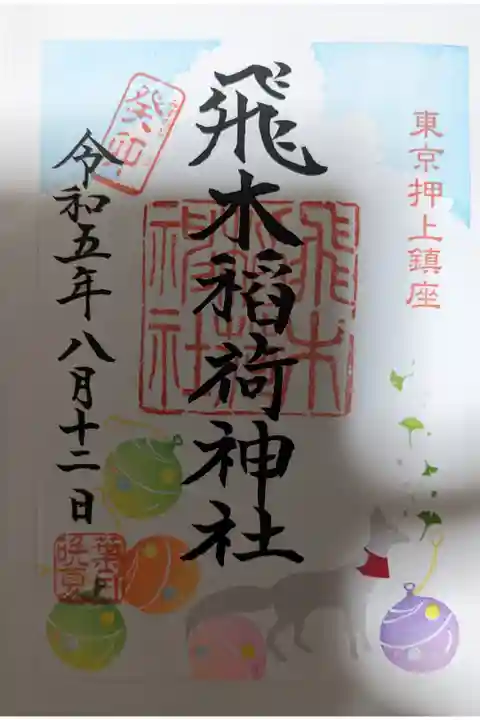 東京押上鎮座
飛木稲荷神社
飛木
稲荷
神社
癸卯
令和五年八月十二日
葉月
晩夏